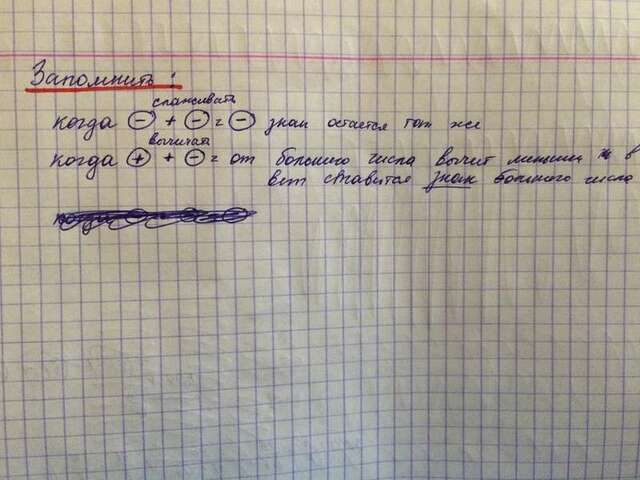 Запомнить:
спаживать
когда ⊖ + ⊖ = ⊖ знак остается тот же
вычитат
когда ⊕ + ⊖ = от большого числа вычит в
вет ставится знак большого числа